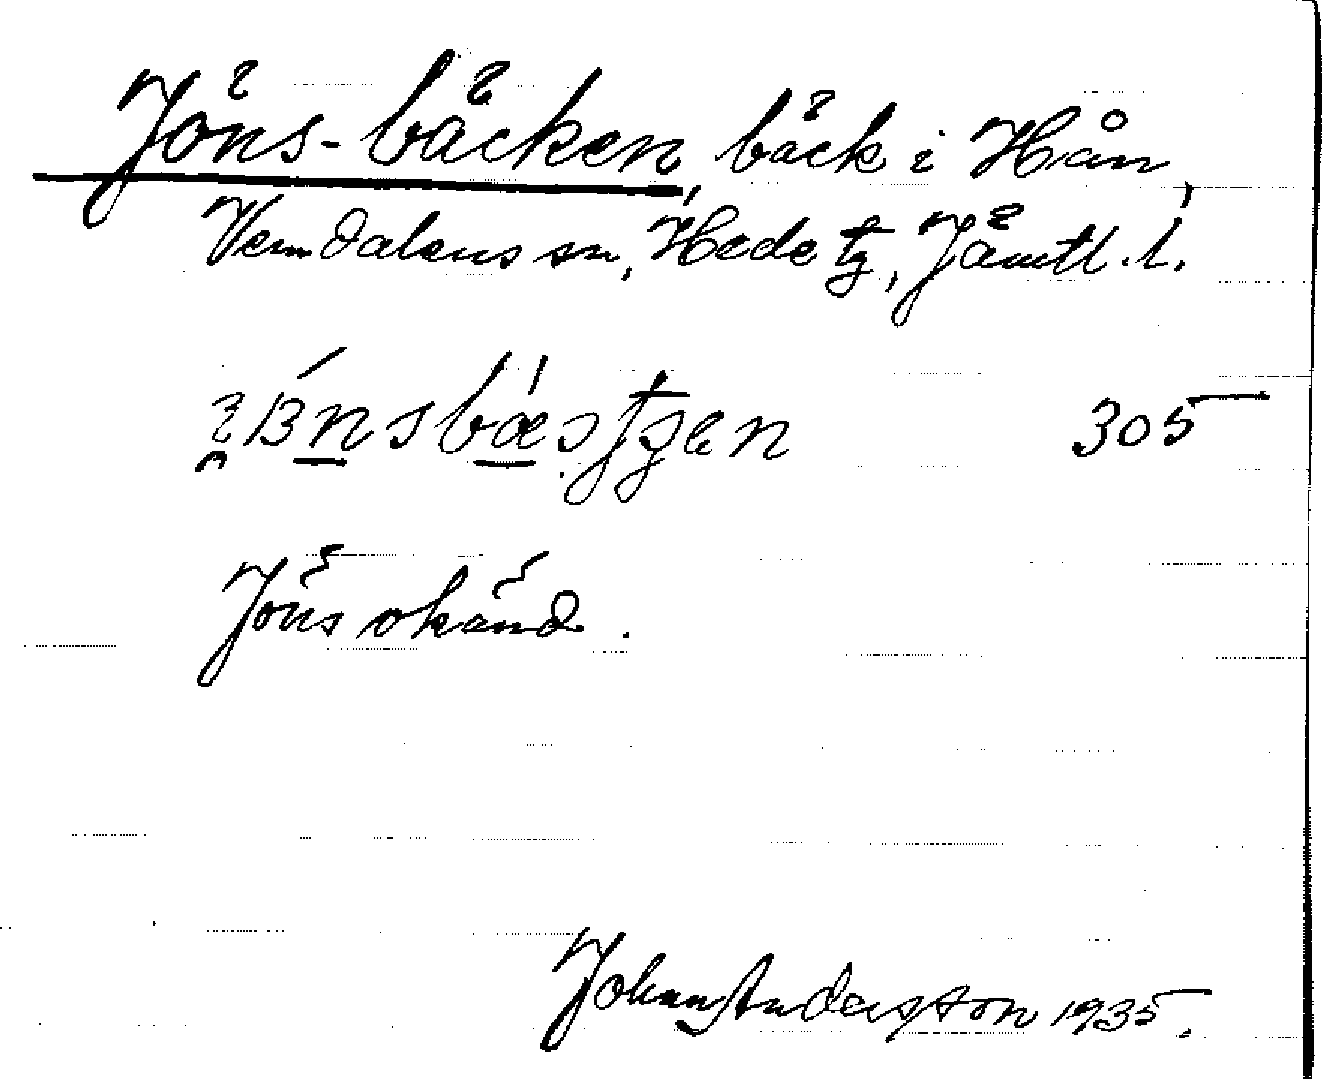 Jöns-bäcken, bäck i Hån,
Vemdalens sn, Hede tg, Jämtl. l.
305
Jöns okänd.
Johan Anderston 1935.